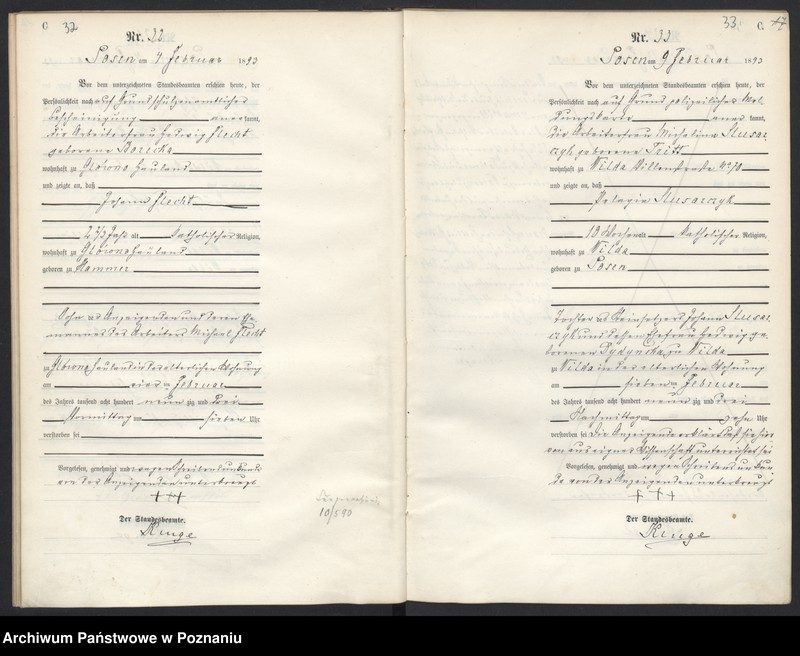 C 32
Nr. 32
Posen am 4 Februar 1893
Vor dem unterzeichneten Standesbeamten erschien heute, der
Persönlichkeit nach auf Grund schulzenamtlicher
Bescheinigung anerkannt,
die Arbeiterfrau Hedwig Flecht
geborene
wohnhaft zu Glowno Hauland
und zeigte an, daß
Johann Flecht
2 1/2 Jahr alt Katholischer Religion,
wohnhaft zu Glowno Hauland
geboren zu Hammer
Sohn der Anzeigenden und deren Ehe
mannes des Arbeiters Michael Flecht
zu Glowno Hauland in der elterlichen Wohnung
am vier ten Februar
des Jahres tausend acht hundert neun zig und drei
Vormittag um sieben Uhr
verstorben sei
Vorgelesen, genehmigt und wegen Schreibensunkunde
von der Anzeigenden unterkreuzt
+++
Der Standesbeamte.
10/3 90
33 C.
Nr. 33
Posen am 9 Februar 1893
Vor dem unterzeichneten Standesbeamten erschien heute, der
Persönlichkeit nach auf Grund polizeilicher Mel
dungskarte anerkannt,
die Arbeiterfrau Michalina Slusar
czyk geborene
wohnhaft zu Wilda Villenstraße
und zeigte an, daß
Pelagia Slusarczyk
10 Wochen alt Katholischer Religion,
wohnhaft zu Wilda
geboren zu Posen
Tochter des Steinsetzers Johann Slusar
czyk und dessen Ehefrau Hedwig ge
borenen zu Wilda
zu Wilda in der elterlichen Wohnung
am sieben ten Februar
des Jahres tausend acht hundert neun zig und drei
Nachmittag um zehn Uhr
verstorben sei Die Anzeigende erklärt daß sie hier
von aus eigner Wissenschaft unterrichtet sei
Vorgelesen, genehmigt und wegen Schreibensunkun
de von der Anzeigenden unterkreuzt
+++
Der Standesbeamte.
Archiwum Państwowe w Poznaniu